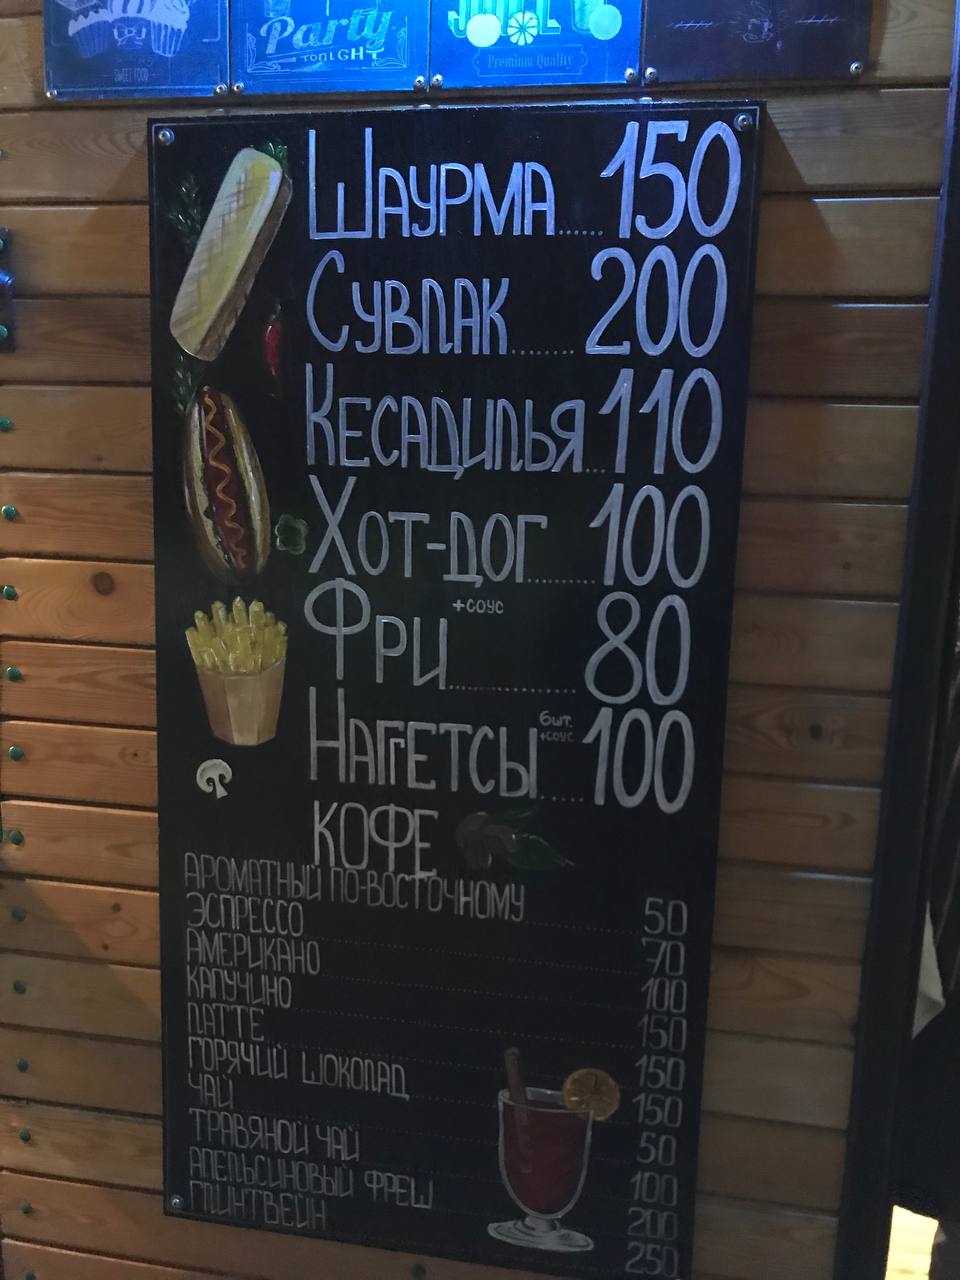 SWEET FOOD
Party
TONIGHT
Premium Quality
ШАУРМА......150
СУВЛАК........200
КЕСАДИЛЬЯ...110
ХОТ-ДОГ..........100
ФРИ +СОУС................80
НАГГЕТСЫ 6шт. +СОУС.....100
КОФЕ
АРОМАТНЫЙ ПО-ВОСТОЧНОМУ 50
ЭСПРЕССО 70
АМЕРИКАНО 100
КАПУЧИНО 150
ЛАТТЕ 150
ГОРЯЧИЙ ШОКОЛАД 150
ЧАЙ 50
ТРАВЯНОЙ ЧАЙ 100
АПЕЛЬСИНОВЫЙ ФРЕШ 200
ГЛИНТВЕЙН 250